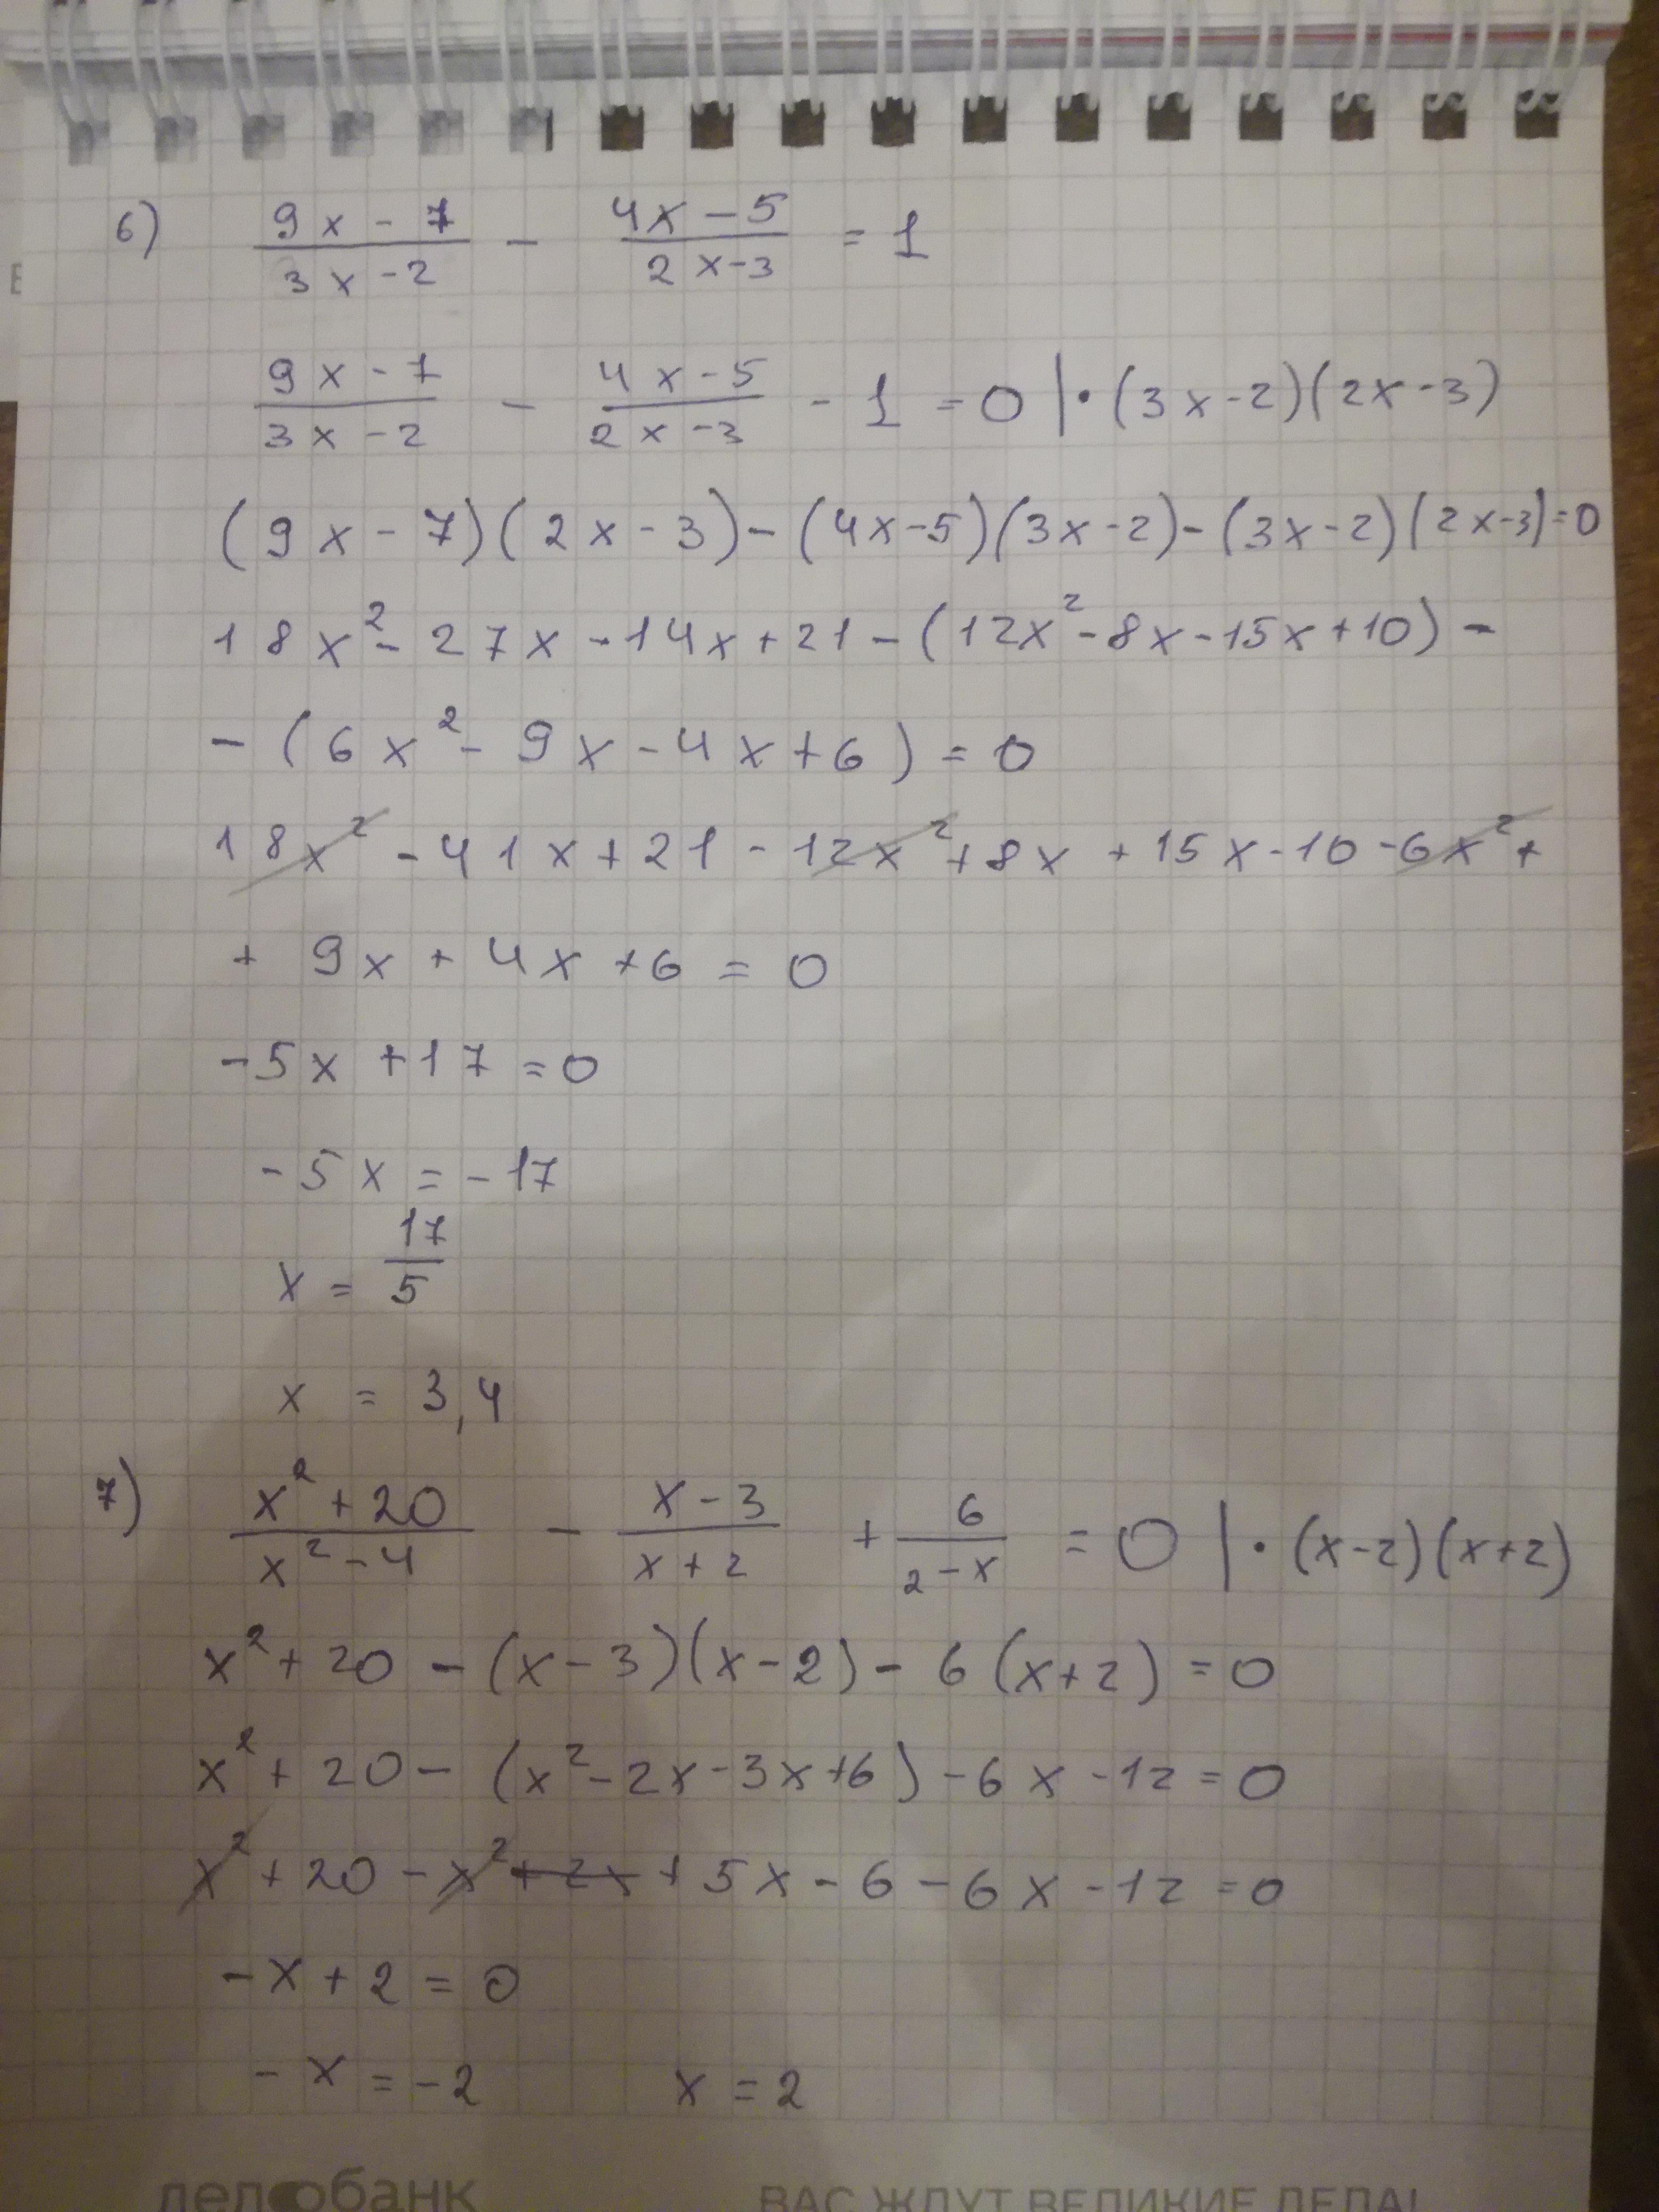 6) (9x - 7)/(3x - 2) - (4x - 5)/(2x - 3) = 1
(9x - 7)/(3x - 2) - (4x - 5)/(2x - 3) - 1 = 0 | · (3x - 2)(2x - 3)
(9x - 7)(2x - 3) - (4x - 5)(3x - 2) - (3x - 2)(2x - 3) = 0
18x² - 27x - 14x + 21 - (12x² - 8x - 15x + 10) -
- (6x² - 9x - 4x + 6) = 0
18x² - 41x + 21 - 12x² + 8x + 15x - 10 - 6x² +
+ 9x + 4x + 6 = 0
-5x + 17 = 0
-5x = -17
x = 17/5
x = 3,4
7) (x² + 20)/(x² - 4) - (x - 3)/(x + 2) + 6/(2 - x) = 0 | · (x - 2)(x + 2)
x² + 20 - (x - 3)(x - 2) - 6(x + 2) = 0
x² + 20 - (x² - 2x - 3x + 6) - 6x - 12 = 0
x² + 20 - x² + 2x + 5x - 6 - 6x - 12 = 0
-x + 2 = 0
-x = -2 x = 2
делобанк ВАС ЖДУТ ВЕЛИКИЕ ДЕЛА!